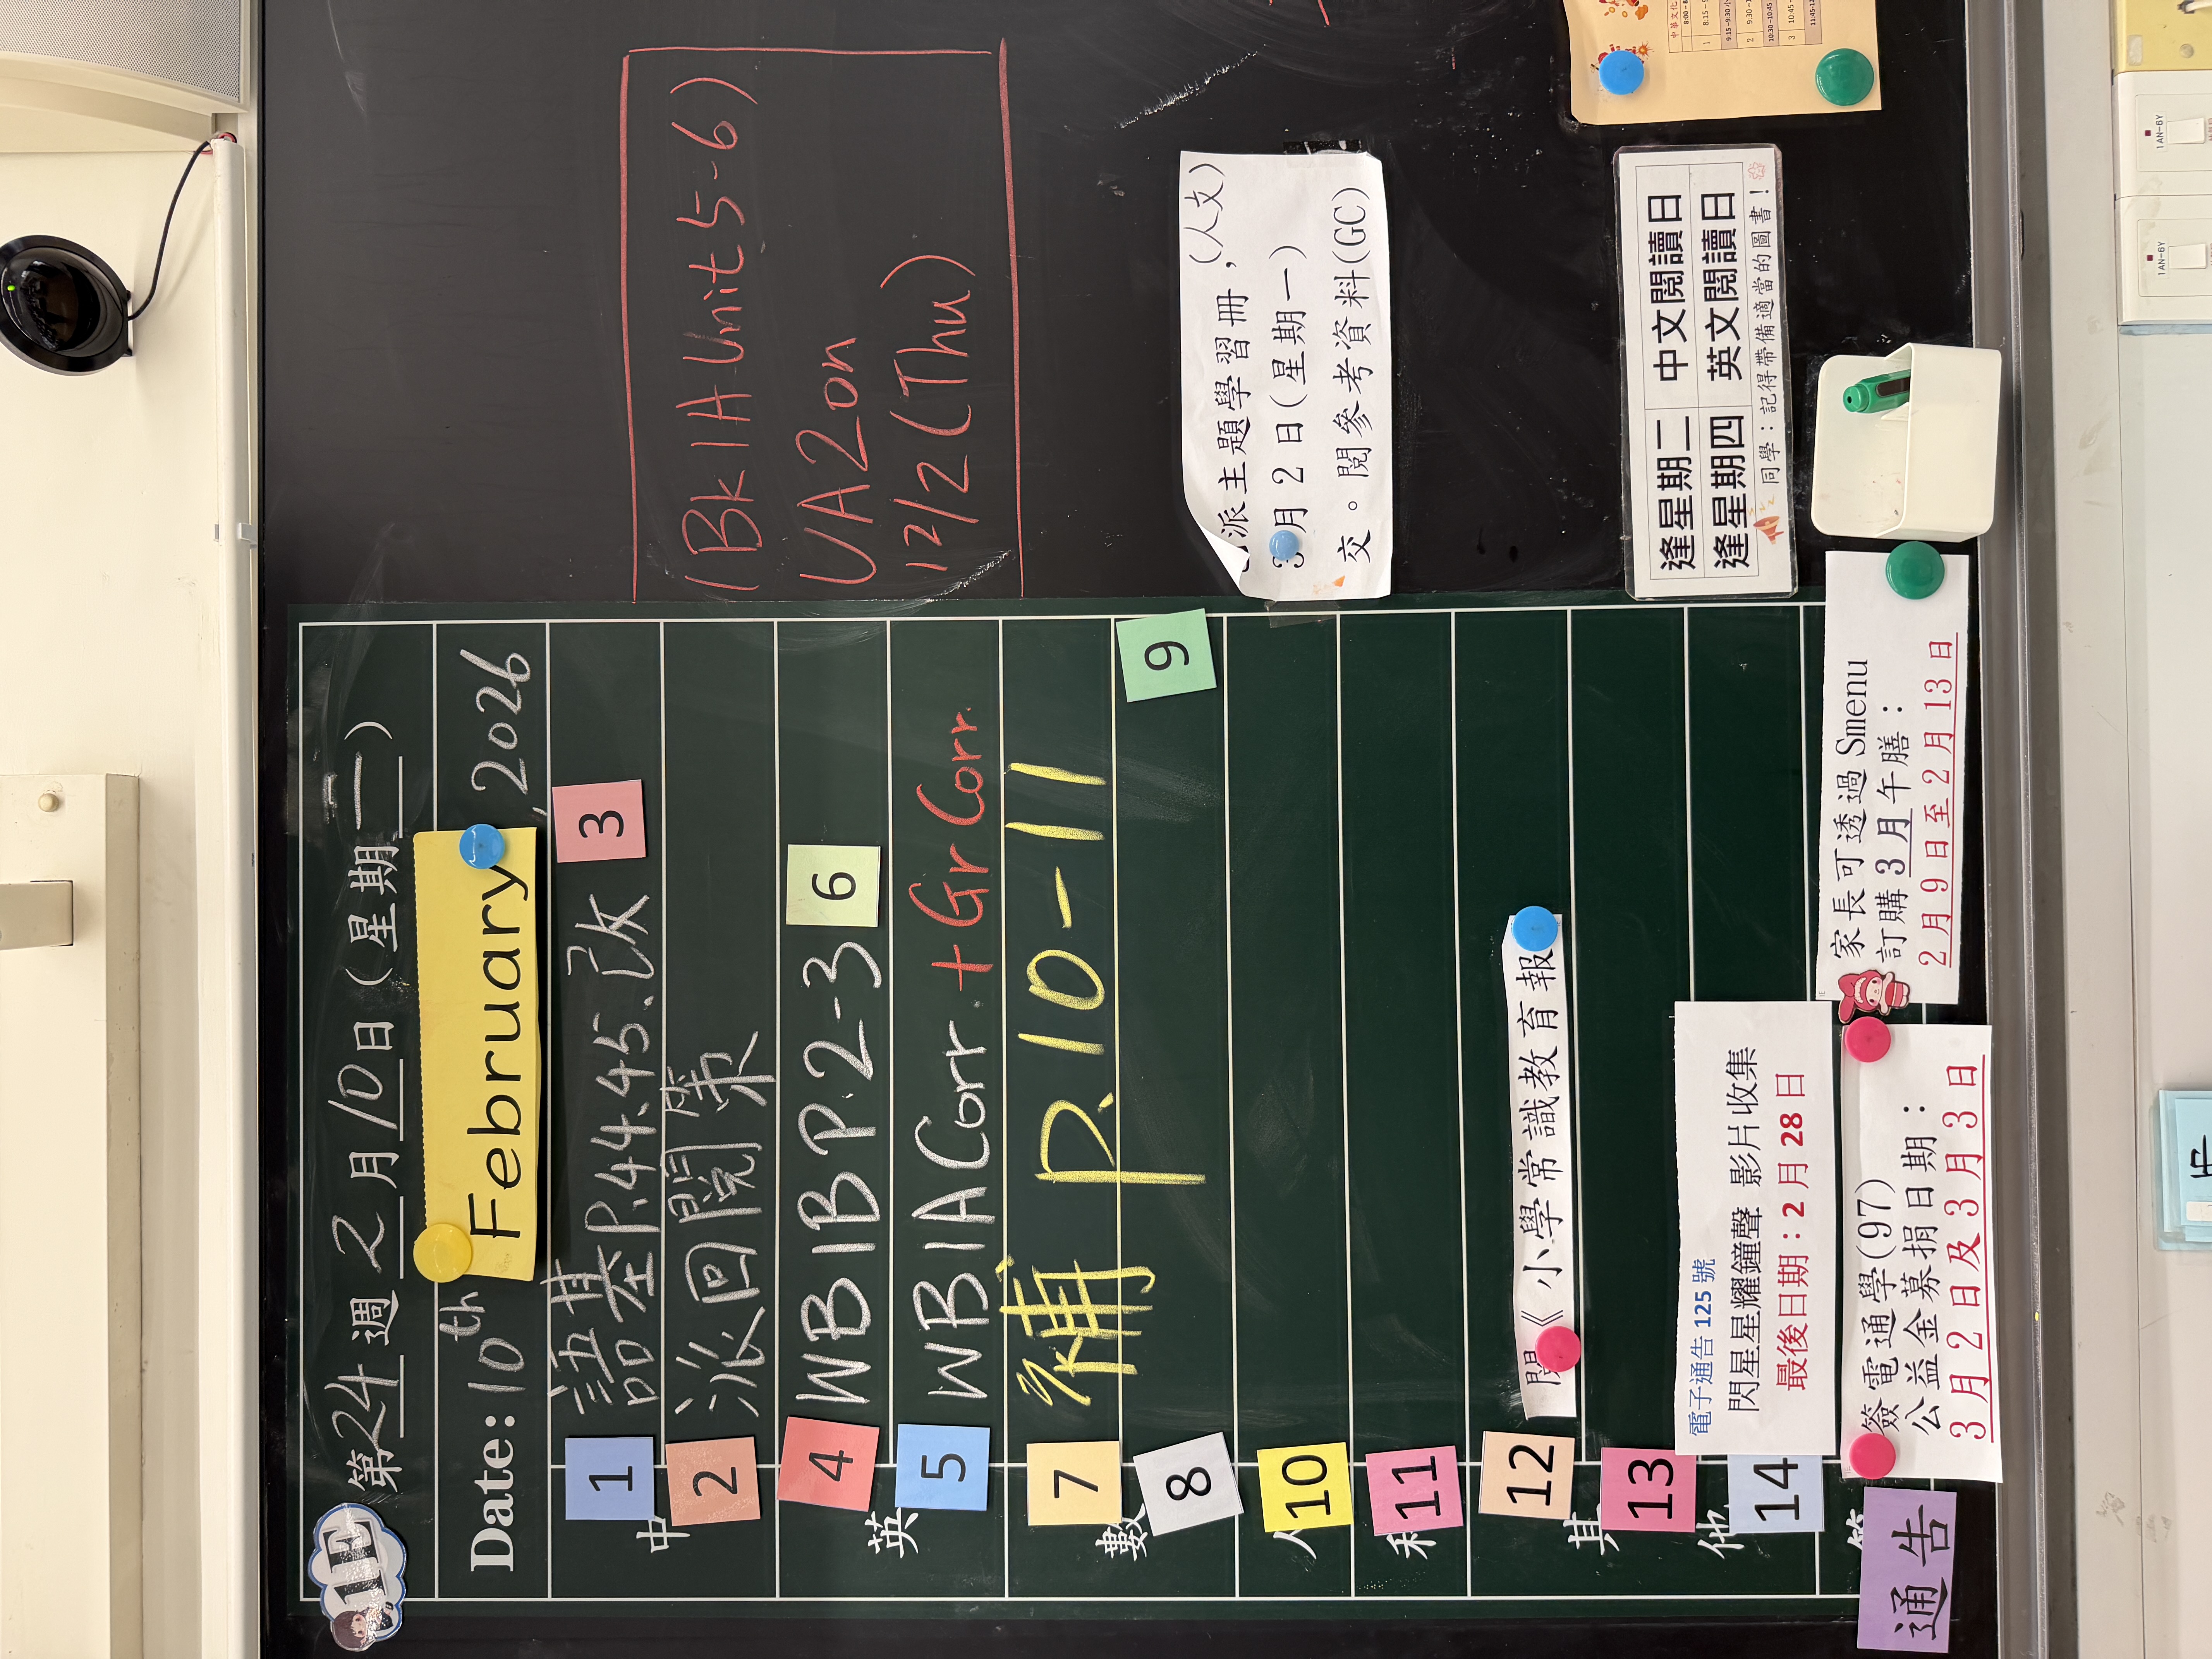 1E
第24週 2月10日(星期二)
Date: 10th February, 2026
中
1 語基P.44.45、改 3
2 派回閱
英
4 WB1B P.2-3 6
5 WB1A Corr. + Gr Corr.
數
7 補 P.10-11
8
9
10
11
12 閱《小學常識教育報
其他
13
14
電子通告 125 號
閃星星耀鐘聲 影片收集
最後日期：2 月 28 日
通告
簽電通學(97)
公益金募捐日期：
3月2日及3月3日
家長可透過Smenu
訂購3月午膳：
2月9日至2月13日
(Bk1A Unit 5-6)
UA2 on
12/2 (Thu)
派主題學習冊, (人文)
3月2日(星期一)
交。閱參考資料(GC)
逢星期二 中文閱讀日
逢星期四 英文閱讀日
同學：記得帶備適當的圖書！
1AN-6Y
1AN-6Y